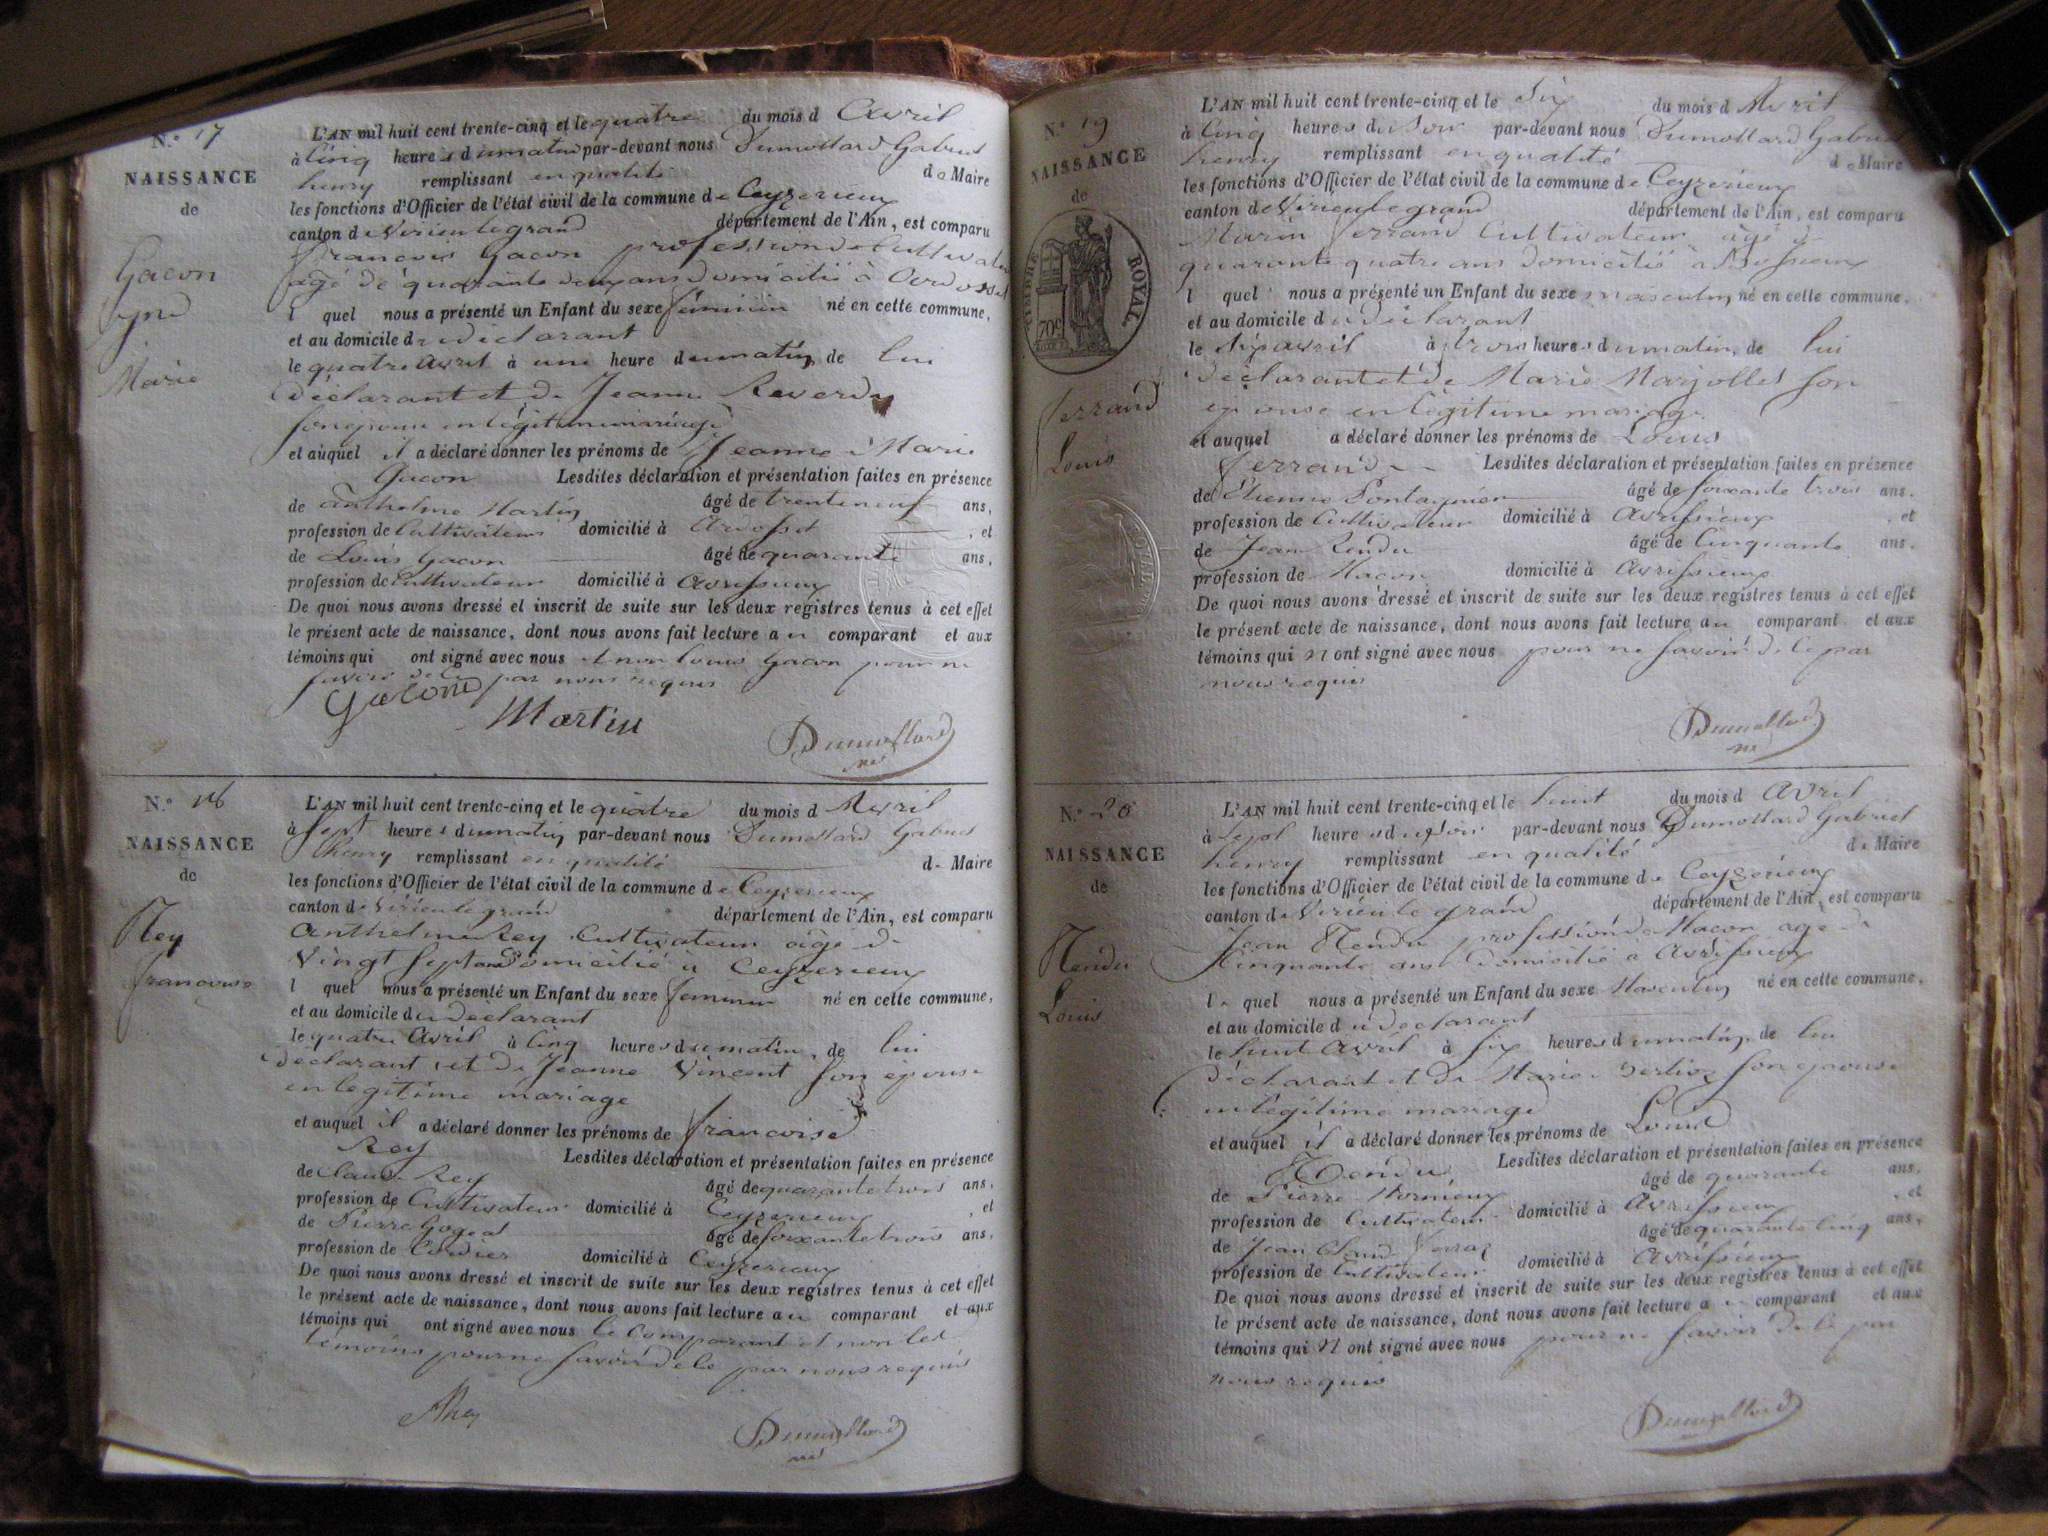 N.° 17
NAISSANCE
de
Gacon
Marie
L'AN mil huit cent trente-cinq et le quatre du mois d Avril
à Cinq heures du matin par-devant nous Dumollard Gabriel
henry remplissant en qualité de Maire
les fonctions d'Officier de l'état civil de la commune de Ceyzerieux
canton de Virieu le grand département de l'Ain, est comparu
francois Gacon profession de Cultivateur
agé de quarante deux ans domicilié à
l quel nous a présenté un Enfant du sexe féminin né en cette commune,
et au domicile du déclarant
le quatre avril à une heure du matin, de lui
déclarant et de Jeanne Reverdy
son epouse en légitime mariage
et auquel il a déclaré donner les prénoms de Jeanne Marie
Gacon Lesdites déclaration et présentation faites en présence
de anthelme Martin âgé de trente neuf ans,
profession de Cultivateur domicilié à , et
de Louis Gacon âgé de quarante ans,
profession de Cultivateur domicilié à avrissieux
De quoi nous avons dressé et inscrit de suite sur les deux registres tenus à cet effet
le présent acte de naissance, dont nous avons fait lecture au comparant et aux
témoins qui ont signé avec nous et non Louis Gacon pour ne
savoir de ce par nous requis
Gacon
Martin
Dumollard
N.° 18
NAISSANCE
de
Rey
francoise
L'AN mil huit cent trente-cinq et le quatre du mois d Avril
à Sept heures du matin par-devant nous Dumollard Gabriel
henry remplissant en qualité de Maire
les fonctions d'Officier de l'état civil de la commune de Ceyzerieux
canton de Virieu le grand département de l'Ain, est comparu
anthelme Rey Cultivateur agé de
Vingt sept ans Domicilié à Ceyzerieux
l quel nous a présenté un Enfant du sexe feminin né en cette commune,
et au domicile du déclarant
le quatre Avril à Cinq heures du matin, de lui
déclarant et de Jeanne Vincent son epouse
en legitime mariage
et auquel il a déclaré donner les prénoms de francoise
Rey Lesdites déclaration et présentation faites en présence
de Claude Rey âgé de quarante trois ans,
profession de Cultivateur domicilié à Ceyzerieux , et
de Pierre âgé de soixante trois ans,
profession de domicilié à Ceyzerieux
De quoi nous avons dressé et inscrit de suite sur les deux registres tenus à cet effet
le présent acte de naissance, dont nous avons fait lecture au comparant et aux
témoins qui ont signé avec nous le comparant et non les
témoins pour ne savoir de ce par nous requis
Dumollard
N.° 19
NAISSANCE
de
TIMBRE ROYAL
70c
ferrand
Louis
L'AN mil huit cent trente-cinq et le Six du mois d Avril
à Cinq heures du Soir par-devant nous Dumollard Gabriel
henry remplissant en qualité de Maire
les fonctions d'Officier de l'état civil de la commune de Ceyzerieux
canton de Virieu le grand département de l'Ain, est comparu
Marin ferrand Cultivateur agé de
quarante quatre ans domicilié à
l quel nous a présenté un Enfant du sexe masculin né en cette commune,
et au domicile du déclarant
le Six avril à trois heures du matin, de lui
déclarant et de Marie Marjollet son
epouse en légitime mariage
et auquel a déclaré donner les prénoms de Louis
ferrand Lesdites déclaration et présentation faites en présence
de Etienne Pontagnier âgé de soixante trois ans,
profession de Cultivateur domicilié à avrissieux , et
de Jean Rendu âgé de Cinquante ans,
profession de Macon domicilié à avrissieux
De quoi nous avons dressé et inscrit de suite sur les deux registres tenus à cet effet
le présent acte de naissance, dont nous avons fait lecture au comparant et aux
témoins qui n ont signé avec nous pour ne savoir de ce par
nous requis
Dumollard
N.° 20
NAISSANCE
de
Rendu
Louis
L'AN mil huit cent trente-cinq et le huit du mois d Avril
à Sept heures du Soir par-devant nous Dumollard Gabriel
henry remplissant en qualité de Maire
les fonctions d'Officier de l'état civil de la commune de Ceyzerieux
canton de Virieu le grand département de l'Ain, est comparu
Jean Rendu profession de Macon agé de
Cinquante ans Domicilié à avrissieux
le quel nous a présenté un Enfant du sexe Masculin né en cette commune,
et au domicile du déclarant
le huit avril à Six heures du matin, de lui
déclarant et de Marie Berlioz son epouse
en légitime mariage
et auquel il a déclaré donner les prénoms de Louis
Rendu Lesdites déclaration et présentation faites en présence
de Pierre âgé de quarante ans,
profession de Cultivateur domicilié à avrissieux , et
de Jean Claude âgé de quarante Cinq ans,
profession de Cultivateur domicilié à avrissieux
De quoi nous avons dressé et inscrit de suite sur les deux registres tenus à cet effet
le présent acte de naissance, dont nous avons fait lecture au comparant et aux
témoins qui n ont signé avec nous pour ne savoir de ce par
nous requis
Dumollard